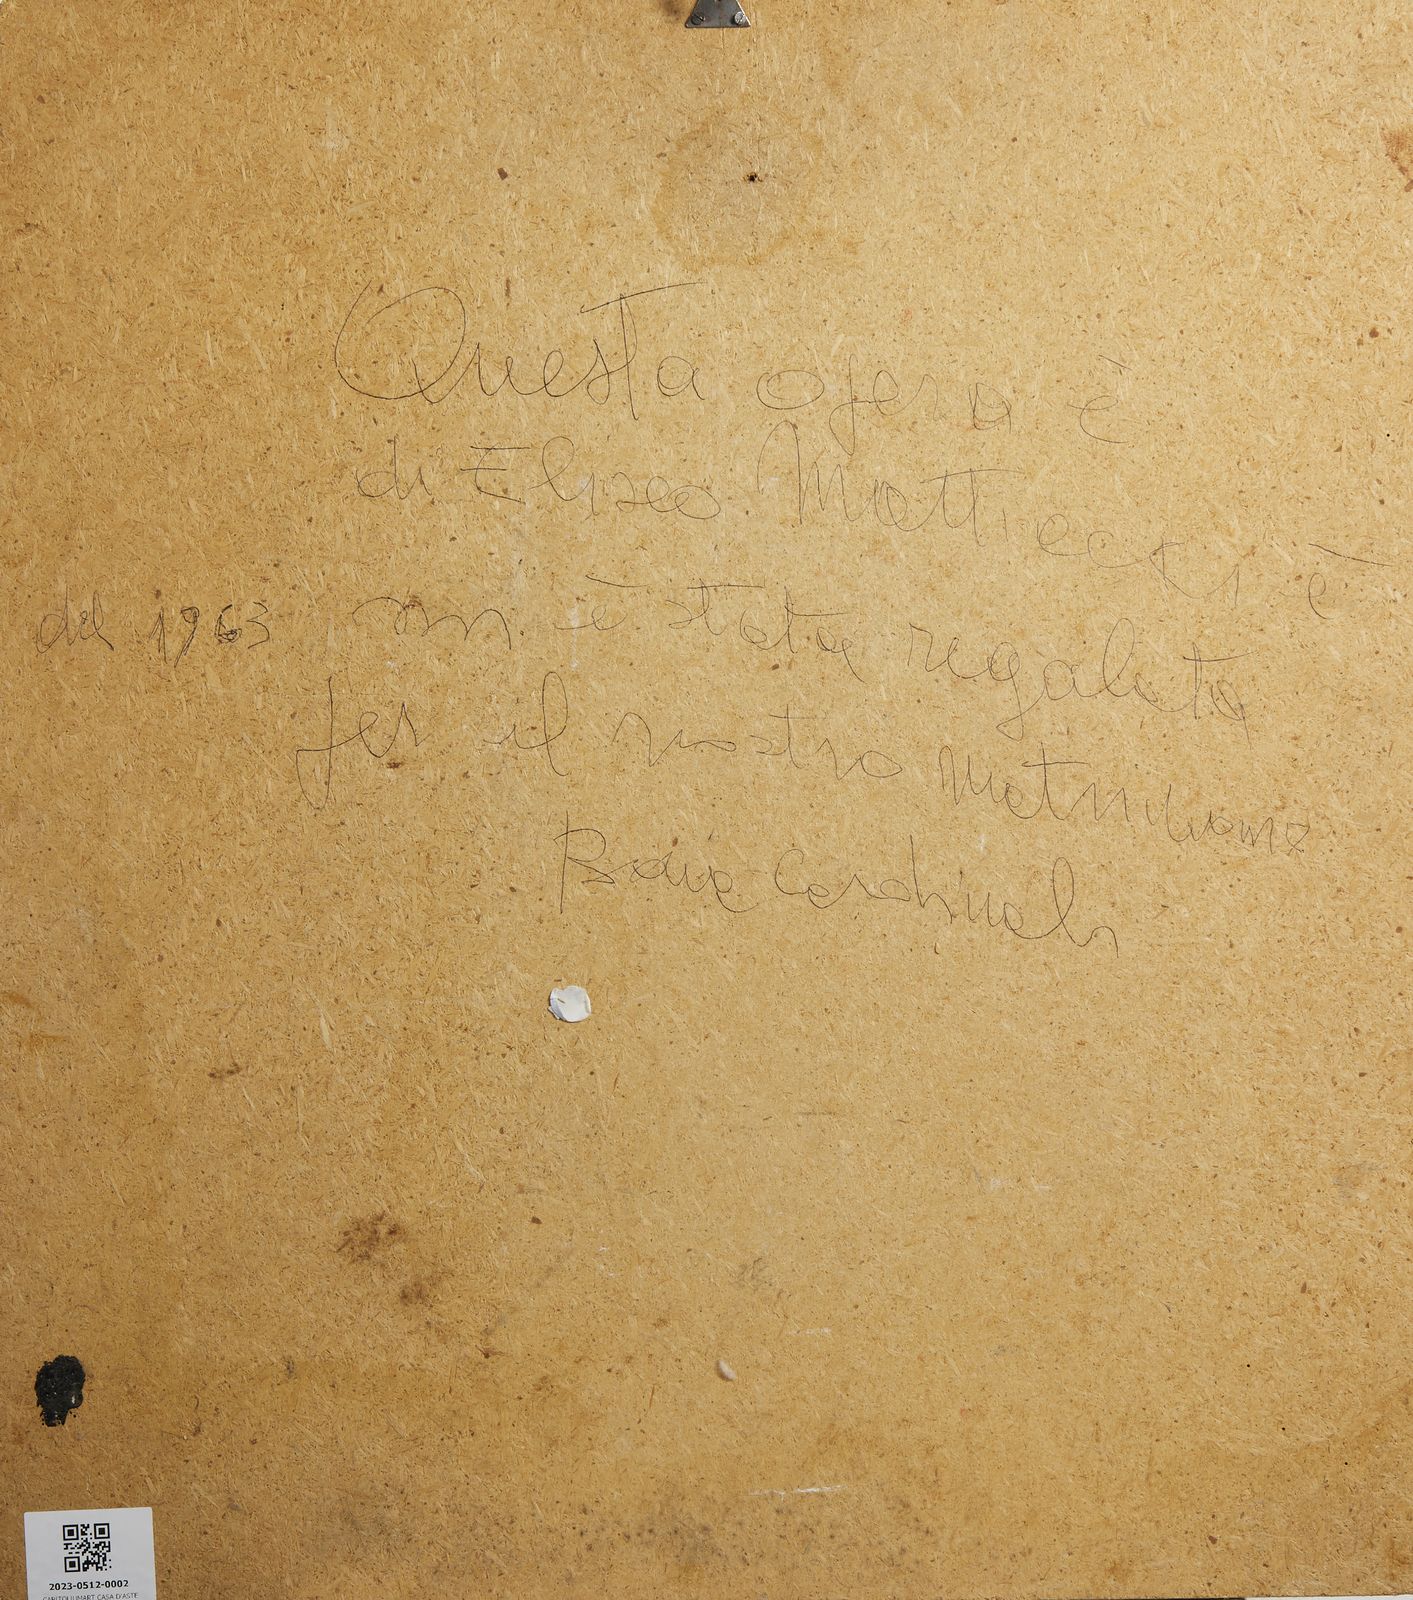 Questa opera è
di Eliseo Mattiacci è
del 1963 mi è stata regalata
per il nostro matrimonio
Cardinali
2023-0512-0002
CAPITOLIUMART CASA D'ASTE